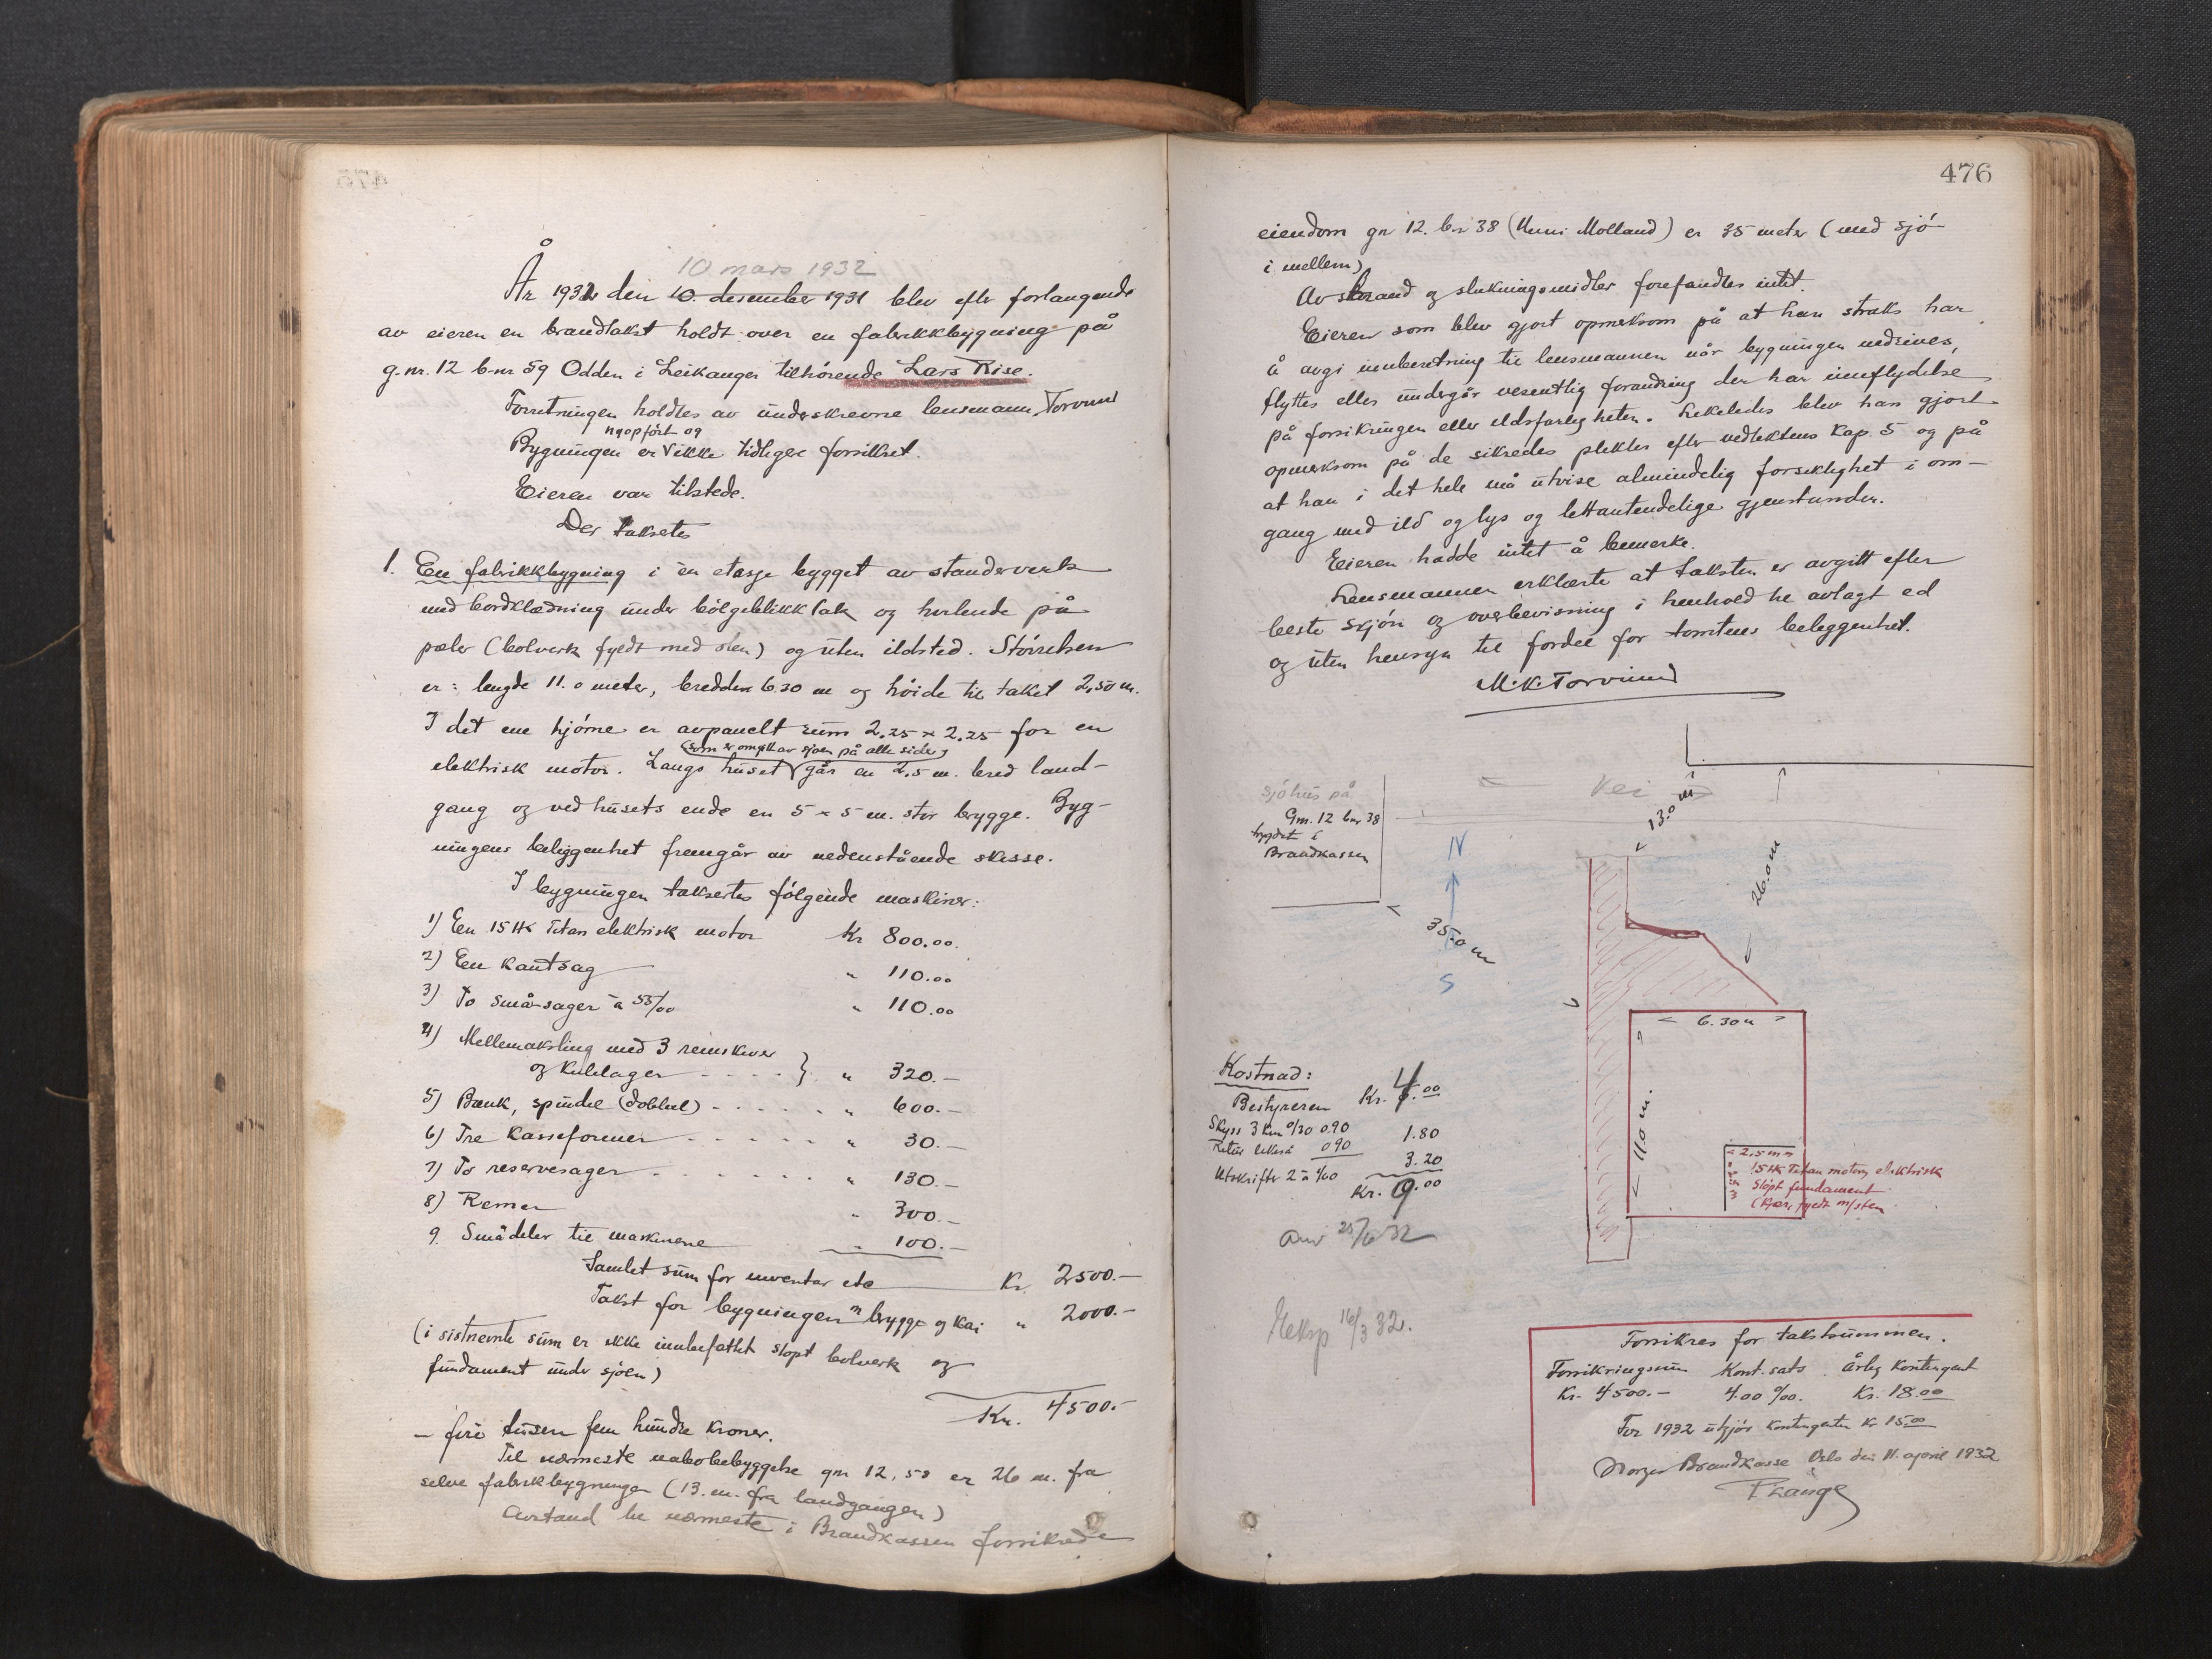 10 mars 1932
År 1932 den 10. desember 1931 blev efter forlangende
av eieren en brandtakst holdt over en fabrikkbygning på
g.nr. 12 b-nr 59 Odden i Leikanger tilhørende Lars Rise.
Forretningen holdtes av underskrevne lensmann, Torvund
nyopført og
Bygningen er ikke tidligere forsikret.
Eieren var tilstede.
Der taksertes
1. En fabrikkbygning i en etasje bygget av standerverk
med bordklædning under bølgeblikktak og hvilende på
peler (bolverk fyldt med sten) og uten ildsted. Størrelsen
er: lengde 11.0 meter, bredden 6.30 m og høide til taket 2,50 m.
I det ene hjørne er avpanelt rum 2,25 x 2,25 for en
(som er omgitt av sjøen på alle sider)
elektrisk motor. Langs huset går en 2,5 m. bred land-
gang og ved husets ende en 5 x 5 m. stor brygge. Byg-
ningens beliggenhet fremgår av nedenstående skisse.
I bygningen taksertes følgende maskiner:
1) En 15 HK Titan elektrisk motor Kr 800.00.
2) En kantsag " 110.00
3) To små-sager à 55/00 " 110.00
4) Mellemaksling med 3 remskiver
og kulelager - - - - } " 320.—
5) Bænk, spindel (dobbel) - - - - - " 600.—
6) Tre kasseformer - - - - - " 30.—
7) To reservesager - - - - - - " 130.—
8) Remer " 300.—
9. Smådeler til maskinene " 100.—
Samlet sum for inventar etc Kr. 2500.—
Takst for bygningen m brygge og kai " 2000.—
(i sistnevnte sum er ikke innbefattet støpt bolverk og
fundament under sjøen)
Kr. 4500.-
— fire tusen fem hundre kroner.
Til nærmeste nabobebyggelse gnr 12, 58 er 26 m. fra
selve fabrikbygningen (13. m. fra landgangen)
Avstand til nærmeste i Brandkassen forsikrede
476
eiendom gnr 12. bnr 38 (Unni Molland) er 35 meter (med sjø
i mellem)
Av sbrand og slukningsmidler forefandtes intet.
Eieren som blev gjort opmerksom på at han straks har
å avgi innberetning til lensmannen når bygningen nedrives,
flyttes eller undergår vesentlig forandring der har innflydelse
på forsikringen eller ildsfarligheten. Likeledes blev han gjort
opmerksom på de sikredes plikter efter vedtektenes Kap. 5 og på
at han i det hele må utvise almindelig forsiktighet i om-
gang med ild og lys og lettantendelige gjenstander.
Eieren hadde intet å bemerke.
Lensmannen erklærte at taksten er avgitt efter
beste skjøn og overbevisning i henhold til avlagt ed
og uten hensyn til fordel for tomtens beliggenhet.
M.K.Torvund
Vei
sjøhus på
Gnr. 12 bnr 38
bygdet i
Brandkassen
13.0 m
26.0 m
N
35.0 m
S
6.30 m
11.0 m.
2,5 m
15 HK Titan motor, elektrisk
Støpt fundament
(Kjær, fyldt m/sten
Kostnad:
Bestyreren Kr. 4.00
Skyss 3 km 0/30 0.90
Retur likeså 0 90 1.80
Utskrifter 2 à 1/60 3.20
Kr. 9.00
Anv 25/6 32
Eksp 16/3 32.
Forsikres for takstsummen.
Forsikringssum Kont. sats. Årlig kontingent
Kr. 4500.- 4.00 ‰. Kr. 18.00
For 1932 utgjør kontingenten Kr 15.00
Norges Brandkasse Oslo den 11. april 1932